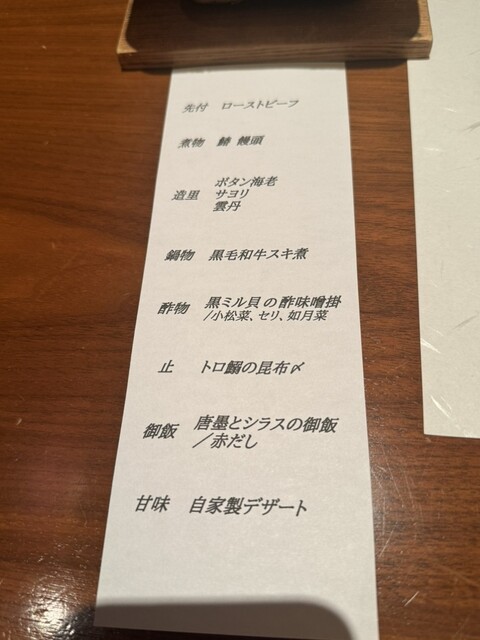 先付 ローストビーフ
煮物 鰆 饅頭
造里 ボタン海老
サヨリ
雲丹
鍋物 黒毛和牛スキ煮
酢物 黒ミル貝の酢味噌掛
/小松菜、セリ、如月菜
止 トロ鰯の昆布〆
御飯 唐墨とシラスの御飯
/赤だし
甘味 自家製デザート